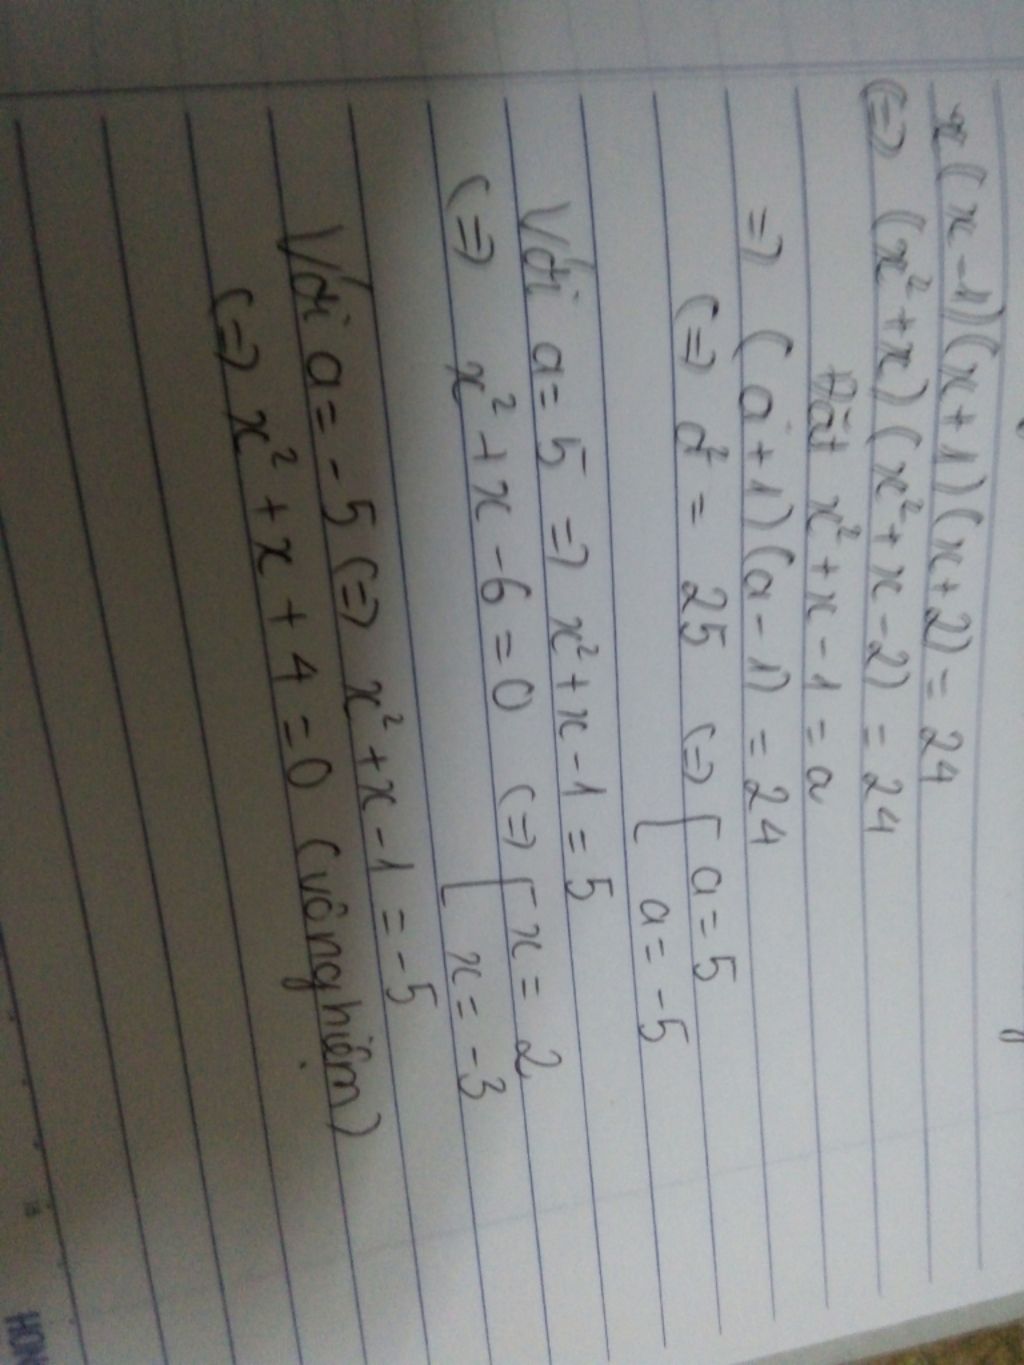 x(x-1)(x+1)(x+2) = 24
(=) (x²+x)(x²+x-2) = 24
Đặt x²+x-1=a
=) (a+1)(a-1) = 24
(=) a² = 25 (=) [ a=5
a=-5
Với a=5 =) x²+x-1=5
(=) x²+x-6=0 (=) [ x=2
x=-3
Với a=-5 (=) x²+x-1=-5
(=) x²+x+4=0 (vô nghiệm)
HON